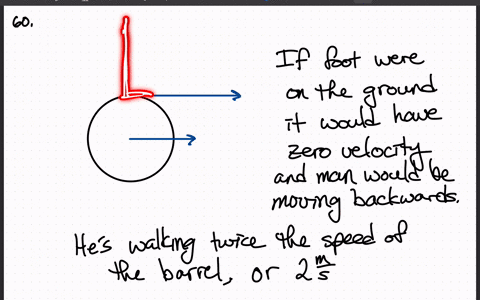 60.
If foot were
on the ground
it would have
zero velocity
and man would be
moving backwards.
He's walking twice the speed of
the barrel, or 2 m/s